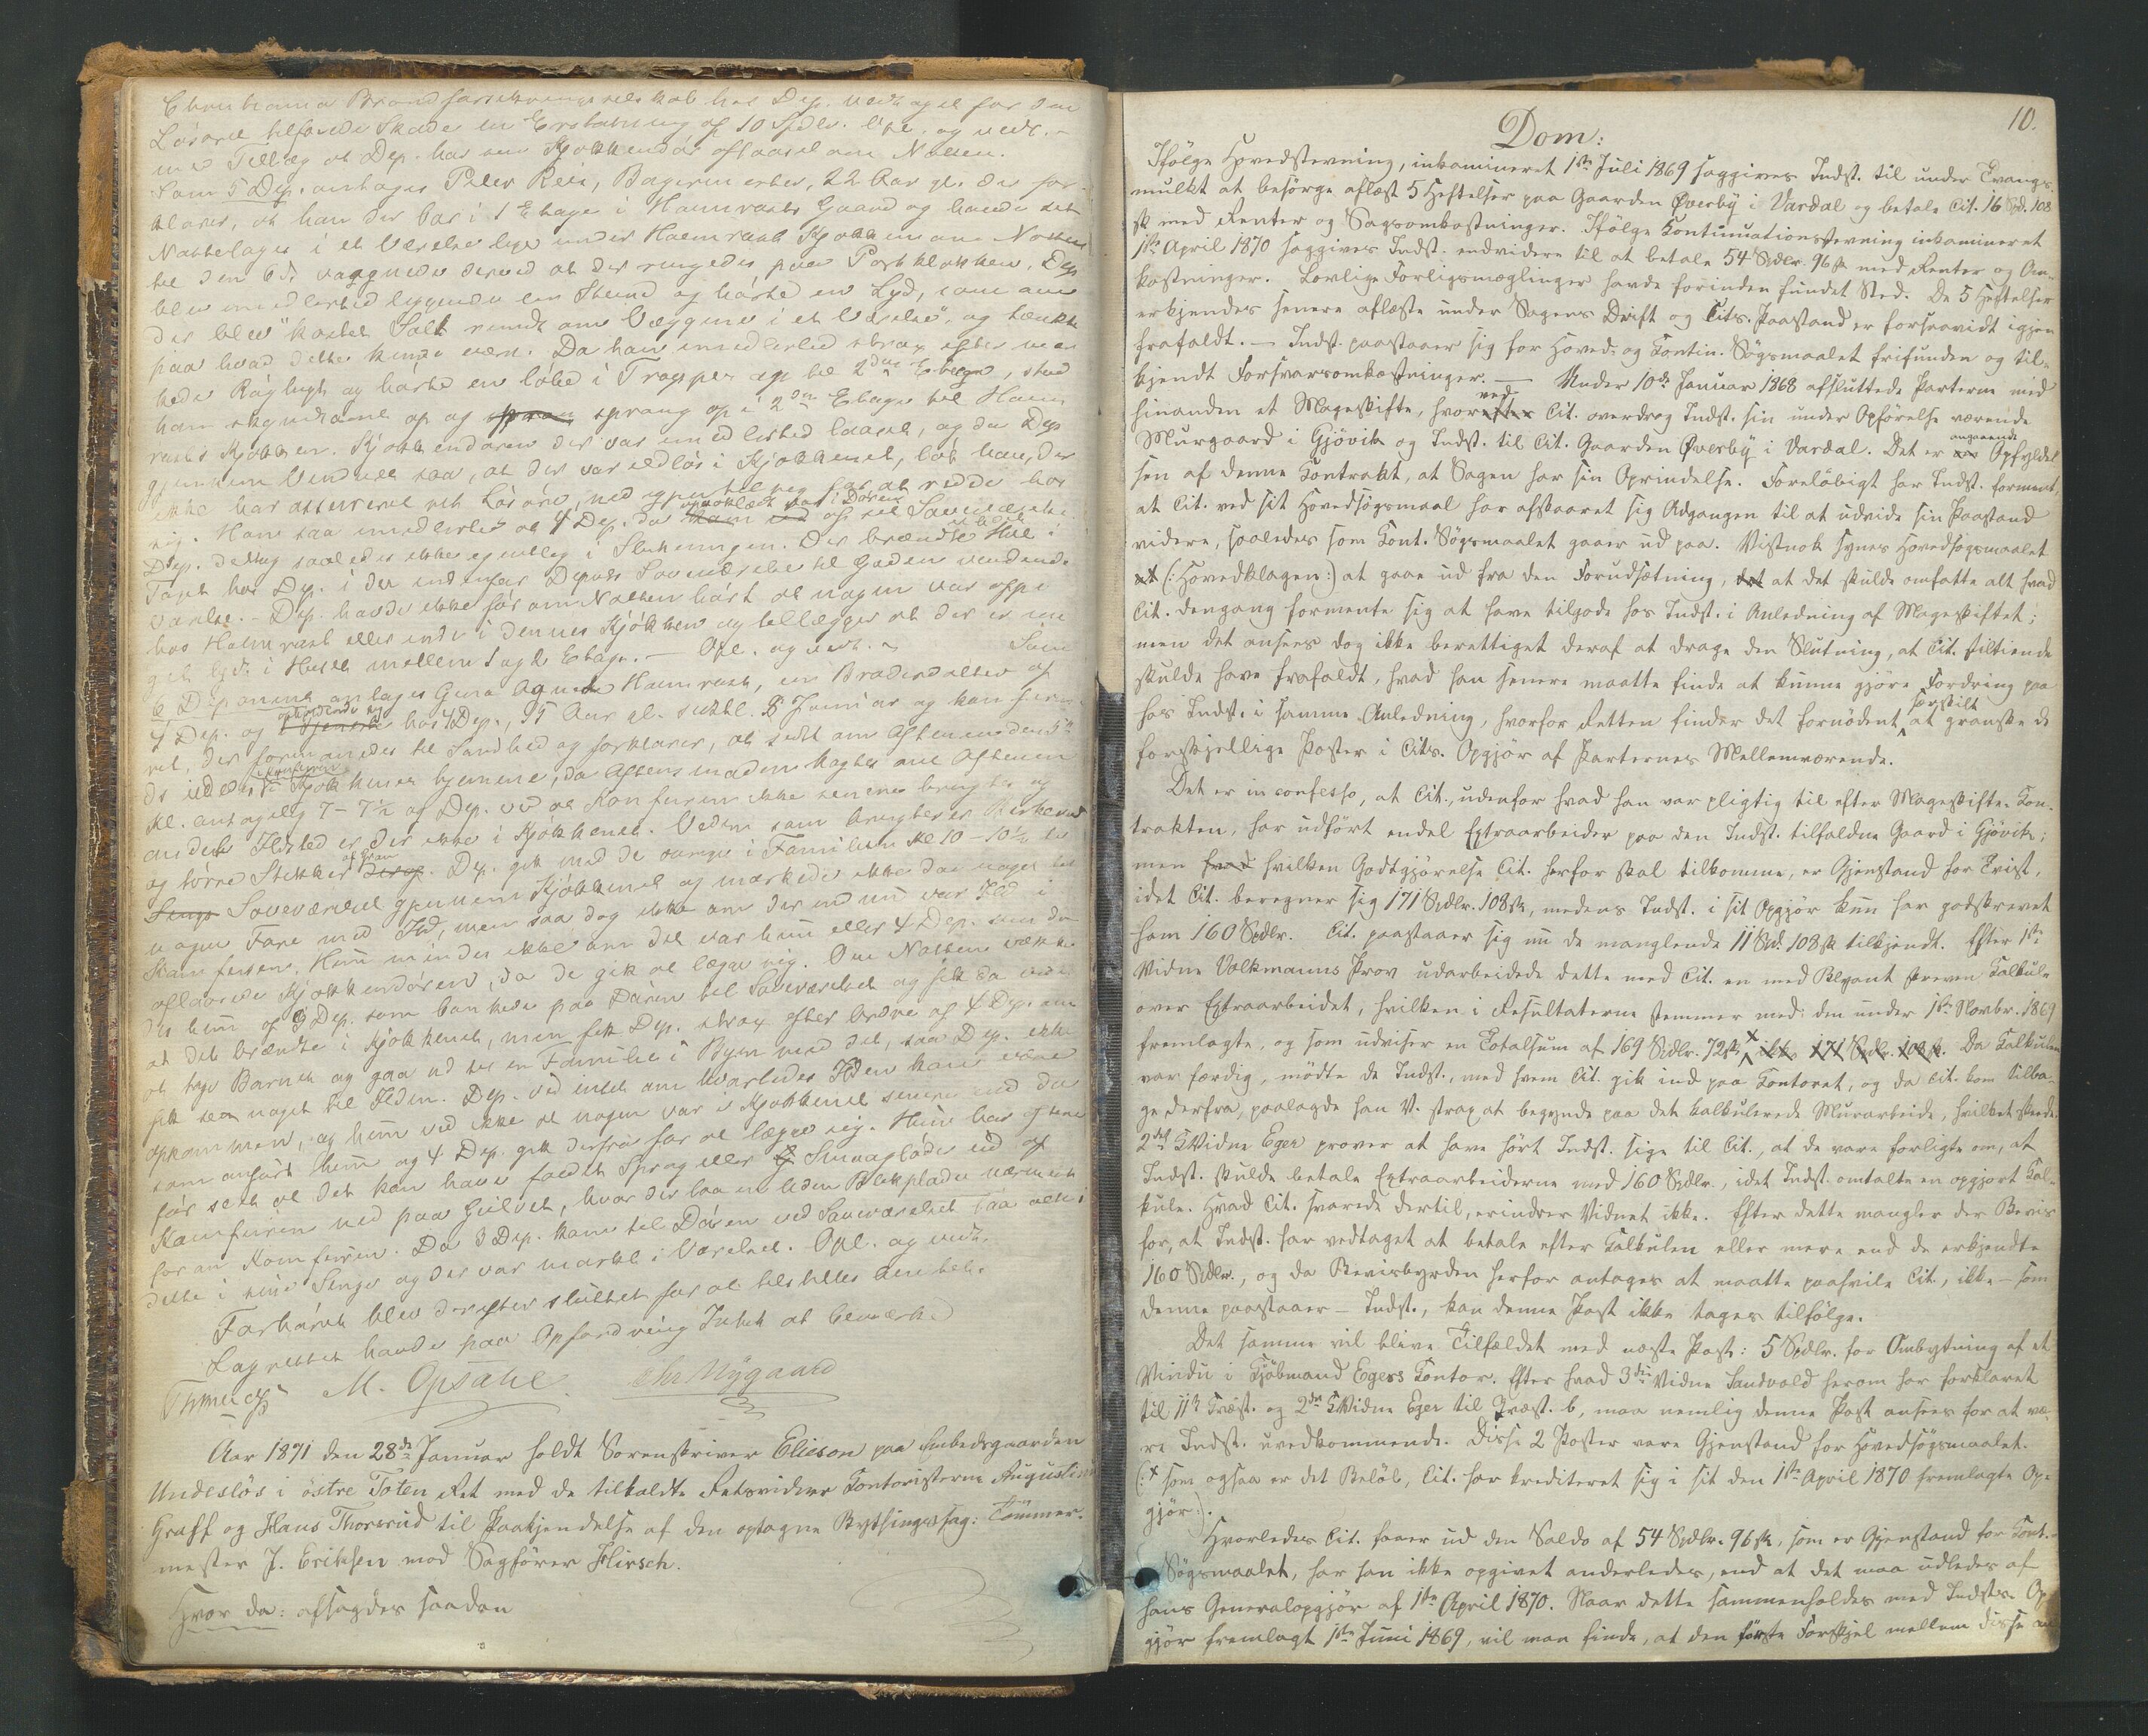 Christiania Brandforsikringsselskab har Dep. vedtaget for den
Lösöret tilföiede Skade en Erstatning af 10 Spdlr. Opl. og vedt. -
med Tillæg at Dep. har sin Kjökkendör aflaaset om Natten.
Som 5 Dep. antages Peter Reie, Bagermester, 22 Aar gl. der for-
klarer, at han der bor i 1 Etage i Hamrasts Gaard og havde sit
Natteleger i et Værelse lige under Hamrast Kjökken om Natten
til den 6de vaagnede derved at der ringedes paa Portklokken. Dep
blev imidlertid liggende en Stund og hörte en Lyd, som om
der blev "kastet Salt rundt om Væggene i et Værelse", og tænkte
paa hvad dette kunde være. Da han imidlertid strax efter mær-
kede Röglugt og hörte en löbe i Trappen op til 2den Etage, stod
han skyndsomt op og sprang op i 2den Etage til Ham-
rasts Kjökken. Kjökkendören der var imidlertid laaset, og da Dep
gjennem Vinduet saa, at der var ildlös i Kjökkenet, löb han, der
ikke har assureret sit Lösöre, ned igjen til sig for at redde hos
sig. Han saa imidlertid at 4 Dep. da paaklædt kom i Dören af sit Soveværelse
Dep. deltog saaledes ikke egentlig i Slukningen. Der brændte et lidet Hul i
Taget hos Dep. i det indenfor Depots Soveværelse til Gaden vendende
Værelse. - Dep. havde ikke för om Natten hört at nogen var oppe
hos Hamrast eller inde i dennes Kjökken og tillægger at der er me-
get lydt i Huset mellem 1 og 2 Etage. — Opl. og vedt. - Som
6 Deponent antages Gina Agnete Hamrast, en Broderdatter af
4 Dep. og opholdende sig hos 4 Dep., 15 Aar gl. sidstl. 8 Januar og kan forma-
net, der formanedes til Sandhed og forklarer, at sidst om Aftenen den 5te
ds ildedes i Komfuren i Kjökkenet hjemme, da Aftensmaden kogtes om Aftenen
Kl. antagelig 7 - 7½ af Dep. ved at Komfuren ikke senere brugtes og
andet Ildsted er der ikke i Kjökkenet. Veden som brugtes er Birkeved
og törre Stikker af Gran. Dep. gik med de övrige i Familien Kl 10 - 10½ til
Soveværelset gjennem Kjökkenet og mærkede ikke da noget til
nogen Fare med Ild, men saa dog ikke om der endnu var Ild i
Komfuren. Hun mindes ikke om det var hun eller 4 Dep. som da
aflaasede Kjökkendören, da de gik at lægge sig. Om Natten vækk-
tes hun af 3 Dep. som bankede paa Dören til Soveværelset og fik da vide
at det brændte i Kjökkenet, men fik Dep. strax efter Ordre af 4 Dep. om
at tage Barnet og gaa ud til en Familie i Byen med det, saa Dep. ikke
fik see noget til Ilden. Dep. ved intet om hvorledes Ilden kan være
opkommen, og hun ved ikke at nogen var i Kjökkenet senere end da
som anfört hun og 4 Dep. gik derfra for at lægge sig. Hun har oftere
för seet at det kan have faldt Sprag eller Smaagloder ud af
Komfuren ned paa Gulvet, hvor der laa en liden Blikplade nærmest
foran Komfuren. Da 3 Dep. kom til Dören ved Soveværelset laa alle i
dette i sine Senge og der var mörkt i Værelset. Opl. og vedt.
Forhöret blev derefter sluttet for at tilstilles Amtet.
Lagrettet havde paa Opfordring Intet at bemærke
M. Opsahl. Chr Nygaard
Aar 1871 den 28de Januar holdt Sorenskriver Elieson paa Embedsgaarden
Undeslös i östre Toten Ret med de tilkaldte Retsvidner Kontoristerne Augustinus
Graff og Hans Thorsrud til Paakjendelse af den optagne Bygslingssag: Tömmer-
mester J. Eriksen mod Sagförer Hirsch.
Hvor da: afsagdes saadan
10.
Dom:
Ifölge Hovedstevning, inkamineret 1ste Juli 1869 saggives Indst. til under Tvangs-
mulkt at besörge aflæst 5 Heftelser paa Gaarden Överby i Vardal og betale Cit. 16 Spd. 108
sk med Renter og Sagsomkostninger. Ifölge Kontinuationsstevning inkamineret
1ste April 1870 saggives Indst. endvidere til at betale 54 Spdlr. 96 sk med Renter og Om-
kostninger. Lovlige Forligsmæglinger havde forinden fundet Sted. De 5 Heftelser
erkjendes senere aflæste under Sagens Drift og Cits. Paastand er forsaavidt igjen
frafaldt. — Indst. paastaaer sig for Hoved- og Kontin. Sögsmaalet frifunden og til-
kjendt Forsvarsomkostninger. — Under 10de Januar 1868 afsluttede Parterne med
hinanden et Mageskifte, hvorefter ved Cit. overdrog Indst. sin under Opförelse værende
Murgaard i Gjövik og Indst. til Cit. Gaarden Överby i Vardal. Det er angaaende Opfyldel-
sen af denne Kontrakt, at Sagen har sin Oprindelse. Foreløbigt har Indst. forment,
at Cit. ved sit Hovedsögsmaal har afskaaret sig Adgangen til at udvide sin Paastand
videre, saaledes som Kont. Sögsmaalet gaaer ud paa. Vistnok synes Hovedsögsmaalet
at (: Hovedklagen :) at gaae ud fra den Forudsætning, det at det skulde omfatte alt hvad
Cit. dengang formente sig at have tilgode hos Indst. i Anledning af Mageskiftet;
men det ansees dog ikke berettiget deraf at drage den Slutning, at Cit. stiltiende
skulde have frafaldt, hvad han senere maatte finde at kunne gjöre Fordring paa
hos Indst. i samme Anledning, hvorfor Retten finder det fornödent særskilt at granske de
forskjellige Poster i Cits. Opgjör af Parternes Mellemværende.
Det er in confesso, at Cit., udenfor hvad han var pligtig til efter Mageskifte-Kon-
trakten, har udfört endel Extraarbeider paa den Indst. tilfaldne Gaard i Gjövik;
men hvad hvilken Godtgjörelse Cit. herfor skal tilkomme, er Gjenstand for Tvist,
idet Cit. beregner sig 171 Spdlr. 108 sk, medens Indst. i sit Opgjör kun har godskrevet
ham 160 Spdlr. Cit. paastaaer sig nu de manglende 11 Spd. 108 sk tilkjendt. Efter 1ste
Vidne Volkmanns Prov udarbeidede dette med Cit. en med Blyant skreven Kalkul-
over Extraarbeidet, hvilken i Resultaterne stemmer med den under 1ste Novbr. 1869
fremlagte, og som udviser en Totalsum af 169 Spdlr. 72 sk, x ikke 171 Spdlr. 108 sk. Da Kalkulen
var færdig, mödte de Indst., med hvem Cit. gik ind paa Kontoret, og da Cit. kom tilba-
ge derfra, paalagde han V. strax at begynde paa det kalkulerede Murarbeide, hvilket skede.
2det KVidne Eger prover at have hört Indst. sige til Cit., at de vare forligte om, at
Indst. skulde betale Extraarbeiderne med 160 Spdlr., idet Indst. omtalte en opgjort Kal-
kule. Hvad Cit. svarede dertil, erindrer Vidnet ikke. Efter dette mangler der Bevis
for, at Indst. har vedtaget at betale efter Kalkulen eller mere end de erkjendte
160 Spdlr., og da Bevisbyrden herfor antages at maatte paahvile Cit., ikke - som
denne paastaaer - Indst., kan denne Post ikke tages tilfölge.
Det samme vil blive Tilfældet med næste Post: 5 Spdlr. for Ombytning af et
Vindu i Kjöbmand Egers Kontor. Efter hvad 3die Vidne Sandvold herom har forklaret
til 11te Kvæst. og 2det KVidne Eger til Kvæst. 6, maa nemlig denne Post ansees for at væ-
re Indst. uvedkommende. Disse 2 Poster vare Gjenstand for Hovedsögsmaalet.
(: x som ogsaa er det Belöb, Cit. har krediteret sig i sit den 1ste April 1870 fremlagte Op-
gjör :).
Hvorledes Cit. faaer ud den Saldo af 54 Spdlr. 96 sk, som er Gjenstand for Kont.-
Sögsmaalet, har han ikke opgivet anderledes, end at det maa udledes af
hans Generalopgjör af 1ste April 1870. Naar dette sammenholdes med Indsts. Op-
gjör fremlagt 1ste Juni 1869, vil man finde, at den förste Forskjel mellem disse